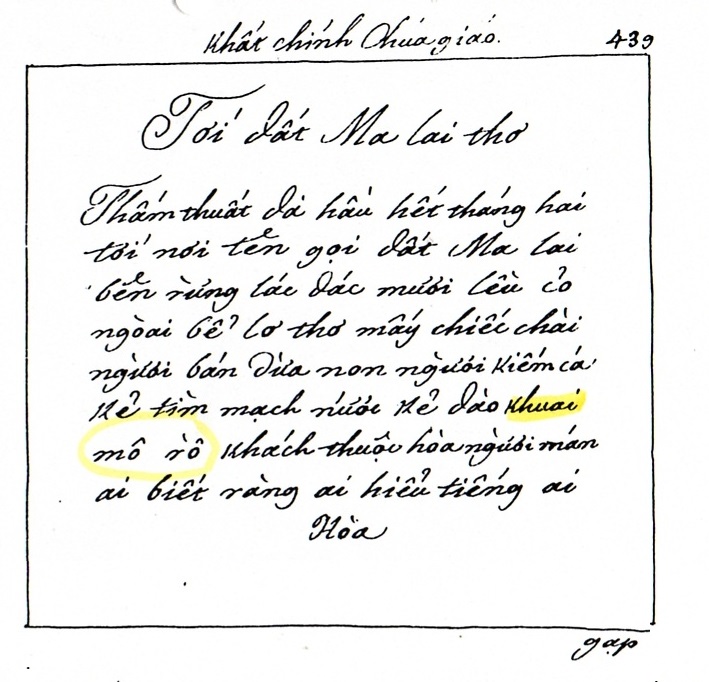 Khất chính Chúa giáo. 439
Tới đất Ma lai thơ
Thấm thuất đà hầu hết tháng hai
tới nơi tên gọi đất Ma lai
bên rừng lác đác mười lều cỏ
ngoài bể lơ thơ mấy chiếc chài
người bán dừa non người kiếm cá
kẻ tìm mạch nước kẻ đào khuai
mô rô khách thuộc hòa người mán
ai biết ràng ai hiểu tiếng ai
Hòa
gặp